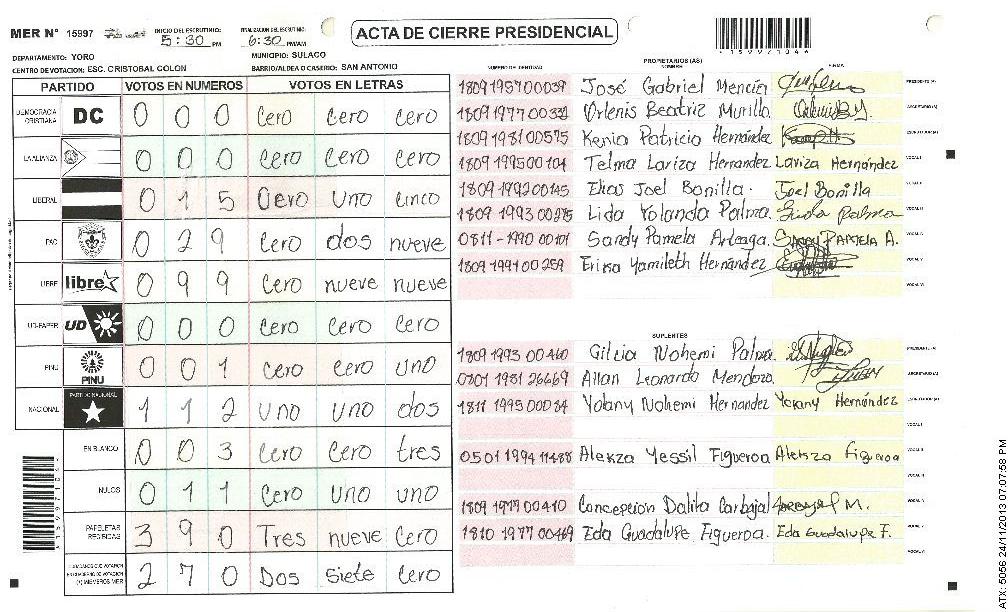 MER N° 15997
INICIO DEL ESCRUTINIO: 5:30 PM
FINALIZACION DEL ESCRUTINIO: 6:30 PM/AM
ACTA DE CIERRE PRESIDENCIAL
DEPARTAMENTO: YORO
MUNICIPIO: SULACO
CENTRO DE VOTACION: ESC. CRISTOBAL COLON
BARRIO/ALDEA O CASERIO: SAN ANTONIO
PARTIDO VOTOS EN NUMEROS VOTOS EN LETRAS
DEMOCRACIA CRISTIANA DC 0 0 0 Cero Cero Cero
LA ALIANZA 0 0 0 Cero Cero Cero
LIBERAL 0 1 5 Cero Uno Cinco
PAC 0 2 9 Cero dos nueve
LIBRE libre 0 9 9 Cero nueve nueve
UD-FAPER UD 0 0 0 Cero Cero Cero
PINU PINU 0 0 1 Cero Cero uno
NACIONAL PARTIDO NACIONAL 1 1 2 Uno uno dos
EN BLANCO 0 0 3 Cero Cero tres
NULOS 0 1 1 Cero uno uno
PAPELETAS RECIBIDAS 3 9 0 Tres nueve Cero
CIUDADANOS QUE VOTARON EN CUADERNO DE VOTACION (+) MIEMBROS MER 2 7 0 Dos siete Cero
NUMERO DE IDENTIDAD PROPIETARIOS (AS) NOMBRE FIRMA
1809 1957 00039 José Gabriel Mencía PRESIDENTE (A)
1809 1977 00332 Orlenis Beatriz Murillo. SECRETARIO (A)
1809 1981 00575 Kenia Patricia Hernández ESCRUTADOR (A)
1809 1995 00104 Telma Lariza Hernandez Lariza Hernández VOCAL I
1809 1992 00145 Elias Joel Bonilla. Joel Bonilla VOCAL II
1809 1993 00275 Lida Yolanda Palma. Lida Palma VOCAL III
0811-1990 00101 Sandy Pamela Arteaga. Sandy Pamela A. VOCAL IV
1809 1991 00259 Erika Yamileth Hernández VOCAL V
VOCAL VI
SUPLENTES
1809 1993 00460 Gilvia Nohemi Palma PRESIDENTE (A)
0801 1981 26669 Allan Leonardo Mendoza. SECRETARIO (A)
1811 1995 00034 Yolany Nohemi Hernandez Yolany Hernández ESCRUTADOR (A)
VOCAL I
0501 1994 11488 Alekza Yessil Figueroa Alekza Figueroa VOCAL II
VOCAL III
1809 1977 00410 Concepción Dalila Carbajal VOCAL IV
1810 1977 00469 Eda Guadalupe Figueroa. Eda Guadalupe F. VOCAL V
VOCAL VI
ATX: 5056 24/11/2013 07:07:58 PM